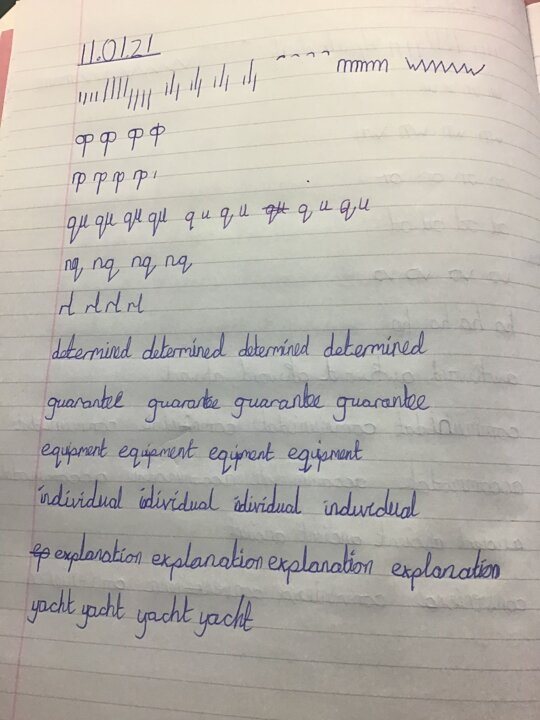 11.01.21
mmmm wwwww
op op op op
rp rp rp rp
qu qu qu qu qu qu qu qu qu
nq nq nq nq
rl rl rl rl
determined determined determined determined
guarantee guarantee guarantee guarantee
equipment equipment equipment equipment
individual individual individual individual
ep explanation explanation explanation explanation
yacht yacht yacht yacht